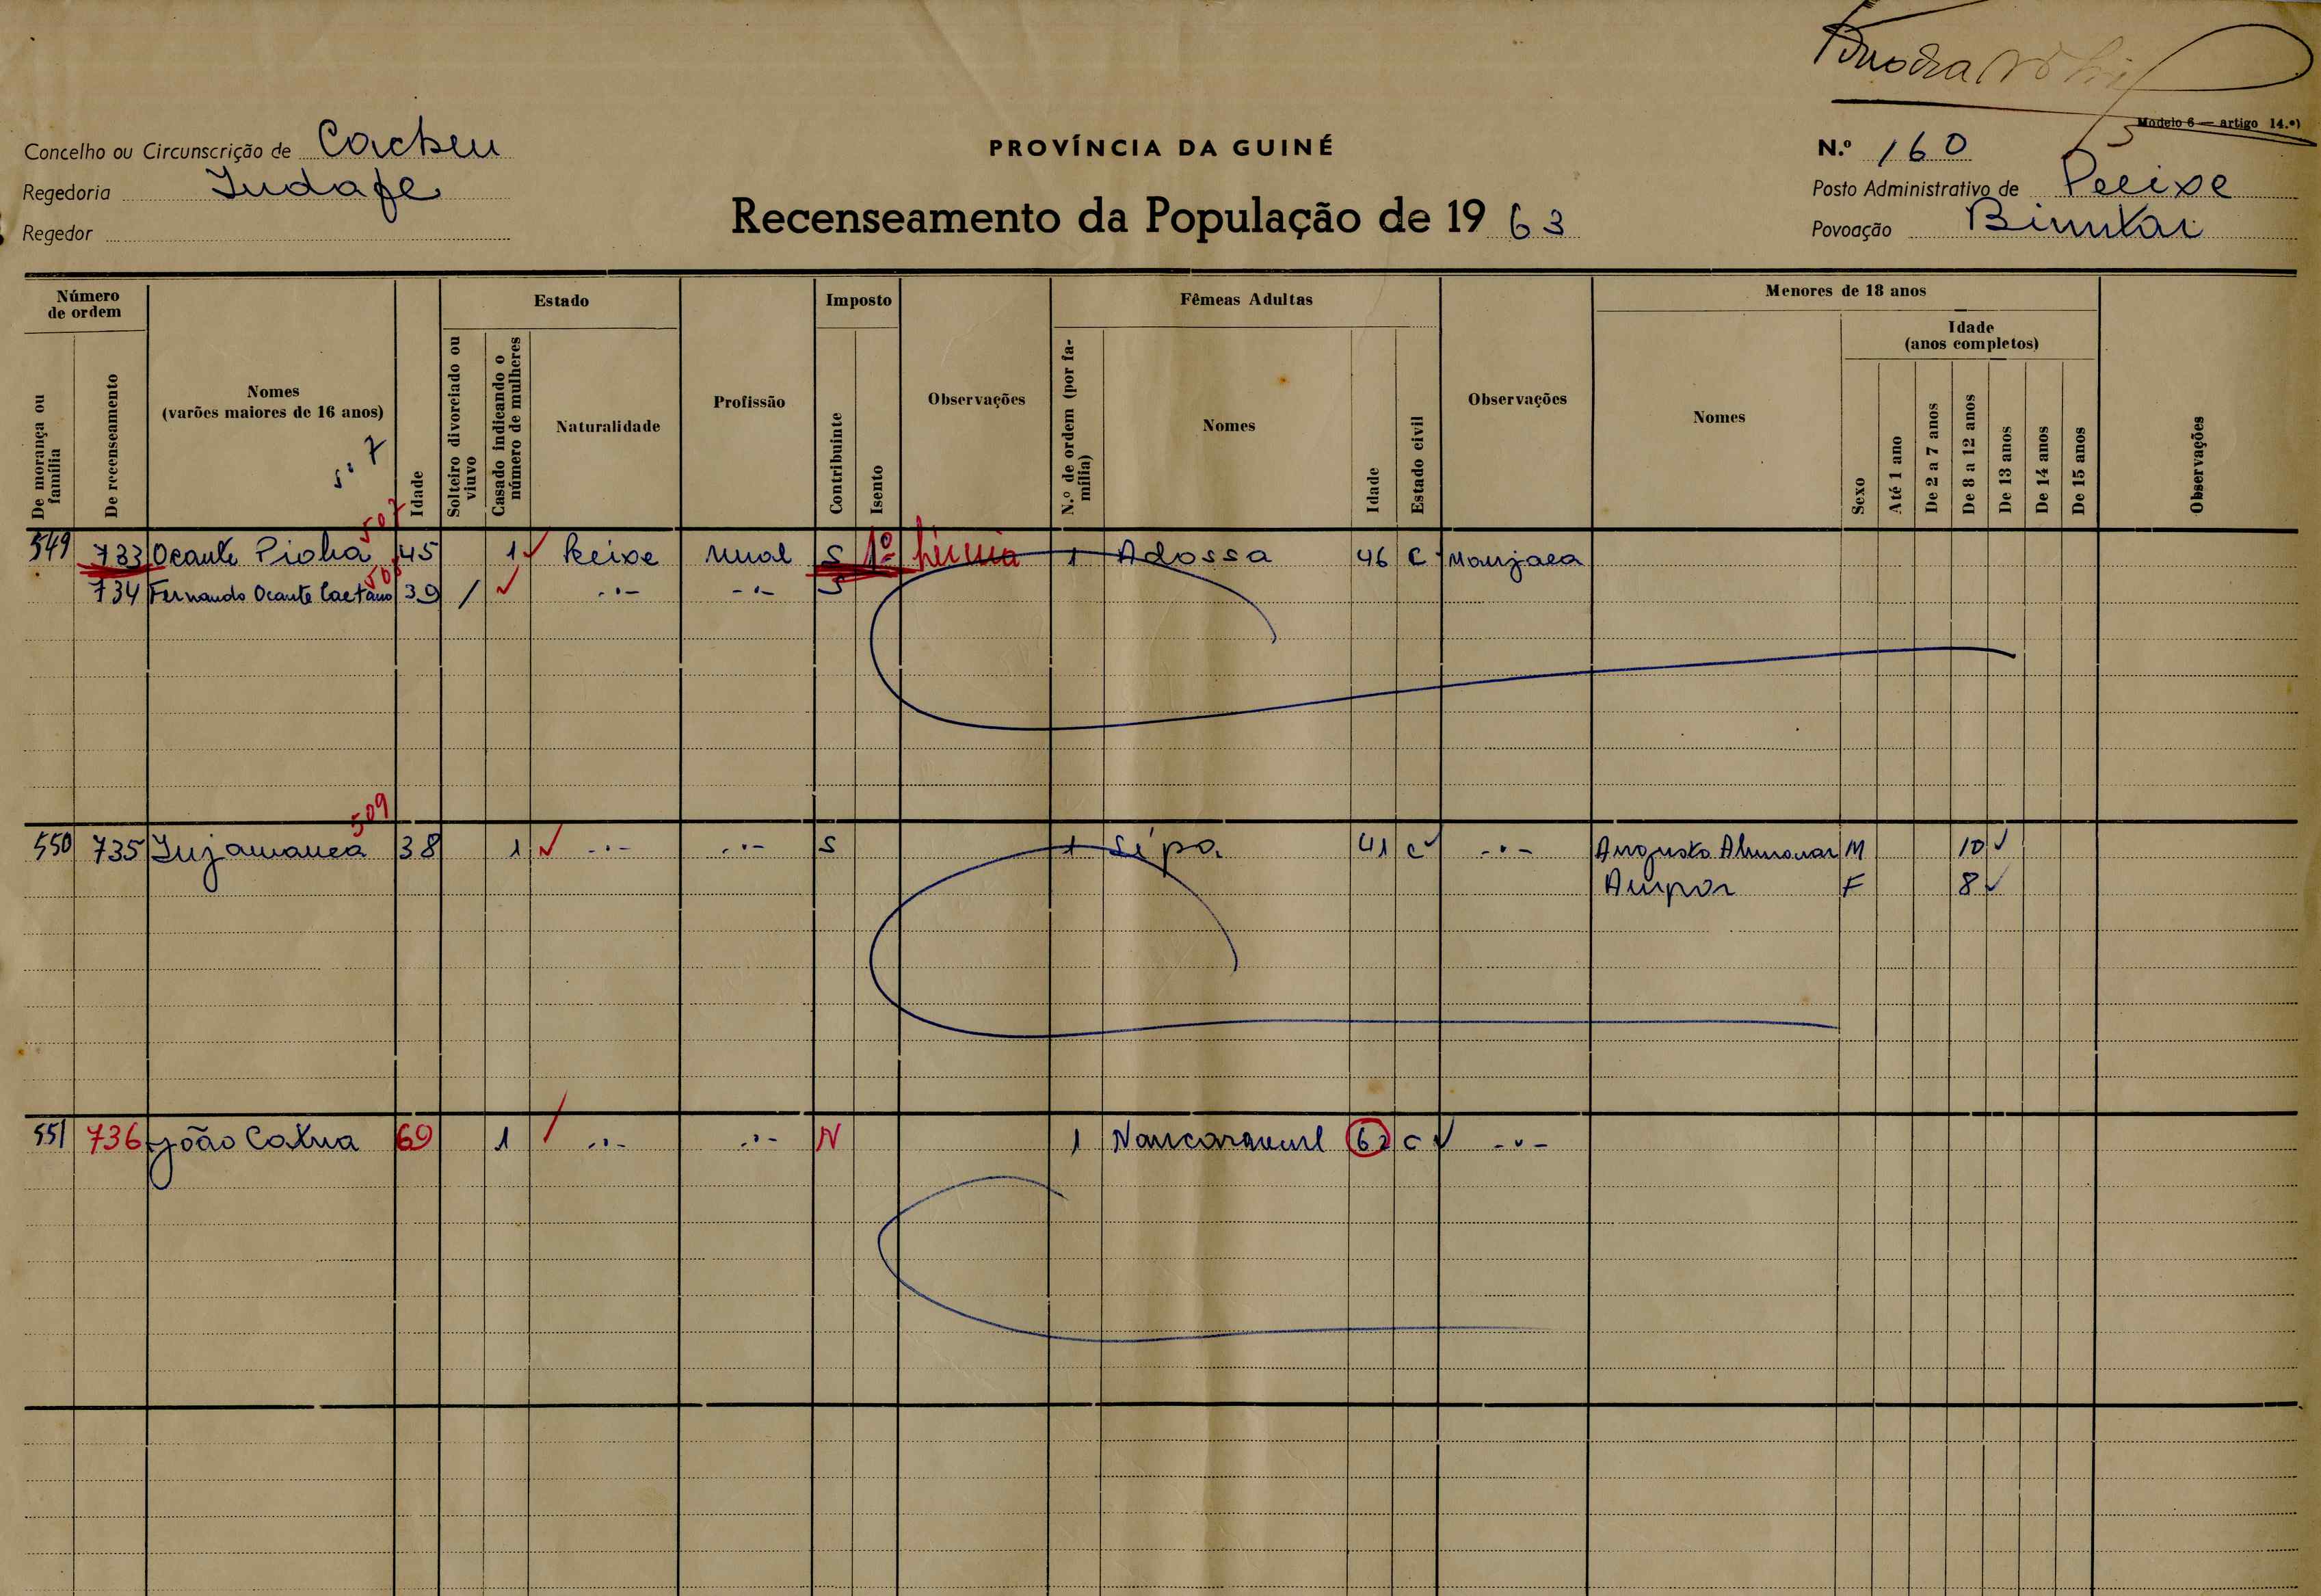 Modelo 6 — artigo 14.º)
Concelho ou Circunscrição de Cacheu
PROVÍNCIA DA GUINÉ
N.º 160
Regedoria Indafe
Posto Administrativo de Pecixe
Regedor
Recenseamento da População de 1963
Povoação Bimkar
Número de ordem
Estado
Imposto
Fêmeas Adultas
Menores de 18 anos
Idade (anos completos)
De morança ou família
De recenseamento
Nomes (varões maiores de 16 anos)
Idade
Solteiro divorciado ou viuvo
Casado indicando o número de mulheres
Naturalidade
Profissão
Contribuinte
Isento
Observações
N.º de ordem (por família)
Nomes
Idade
Estado civil
Observações
Nomes
Sexo
Até 1 ano
De 2 a 7 anos
De 8 a 12 anos
De 13 anos
De 14 anos
De 15 anos
Observações
507
549 733 Ocante Pioha 45 1 Peixe rual S 1º hérnia 1 Adossa 46 C Manjaca
508
734 Fernando Ocante Caetano 39 / -"- -"- S
509
550 735 Injamanca 38 1 -"- -"- S 1 Sipa 41 C -"- Augusto M 10
Ampor F 8
551 736 João Catua 69 1 -"- -"- N 1 62 C -"-